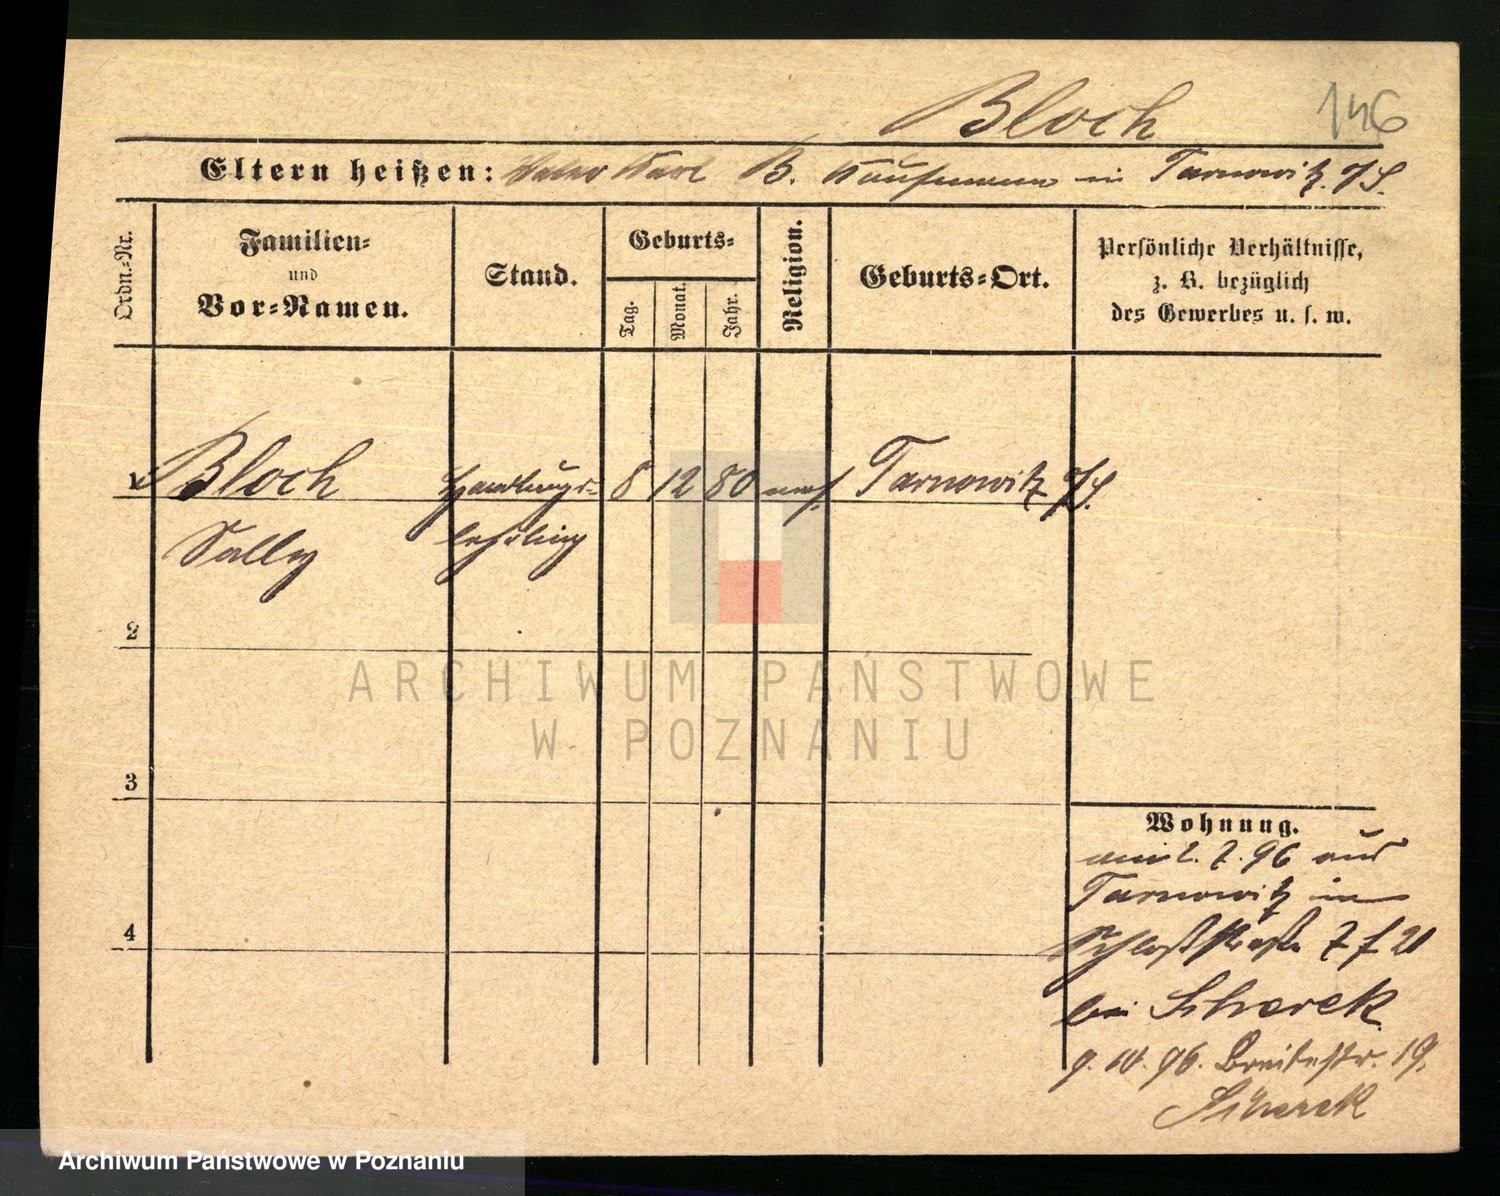 Bloch 146
Eltern heißen: Vater Karl B. Kaufmann in Tarnowitz O/S.
Ordn.-Nr.
Familien-
und
Vor-Namen.
Stand.
Geburts-
Tag.
Monat.
Jahr.
Religion.
Geburts-Ort.
Persönliche Verhältnisse,
z. B. bezüglich
des Gewerbes u. s. w.
Bloch Handlungs- 8 12 80 mos. Tarnowitz O/S.
Sally lehrling
2
3
4
Wohnung.
2. 7. 96 aus
Tarnowitz in
Schloßstraße 7
bei
9. 10. 96. Breitestr. 19.
ARCHIWUM PAŃSTWOWE
W POZNANIU
Archiwum Państwowe w Poznaniu